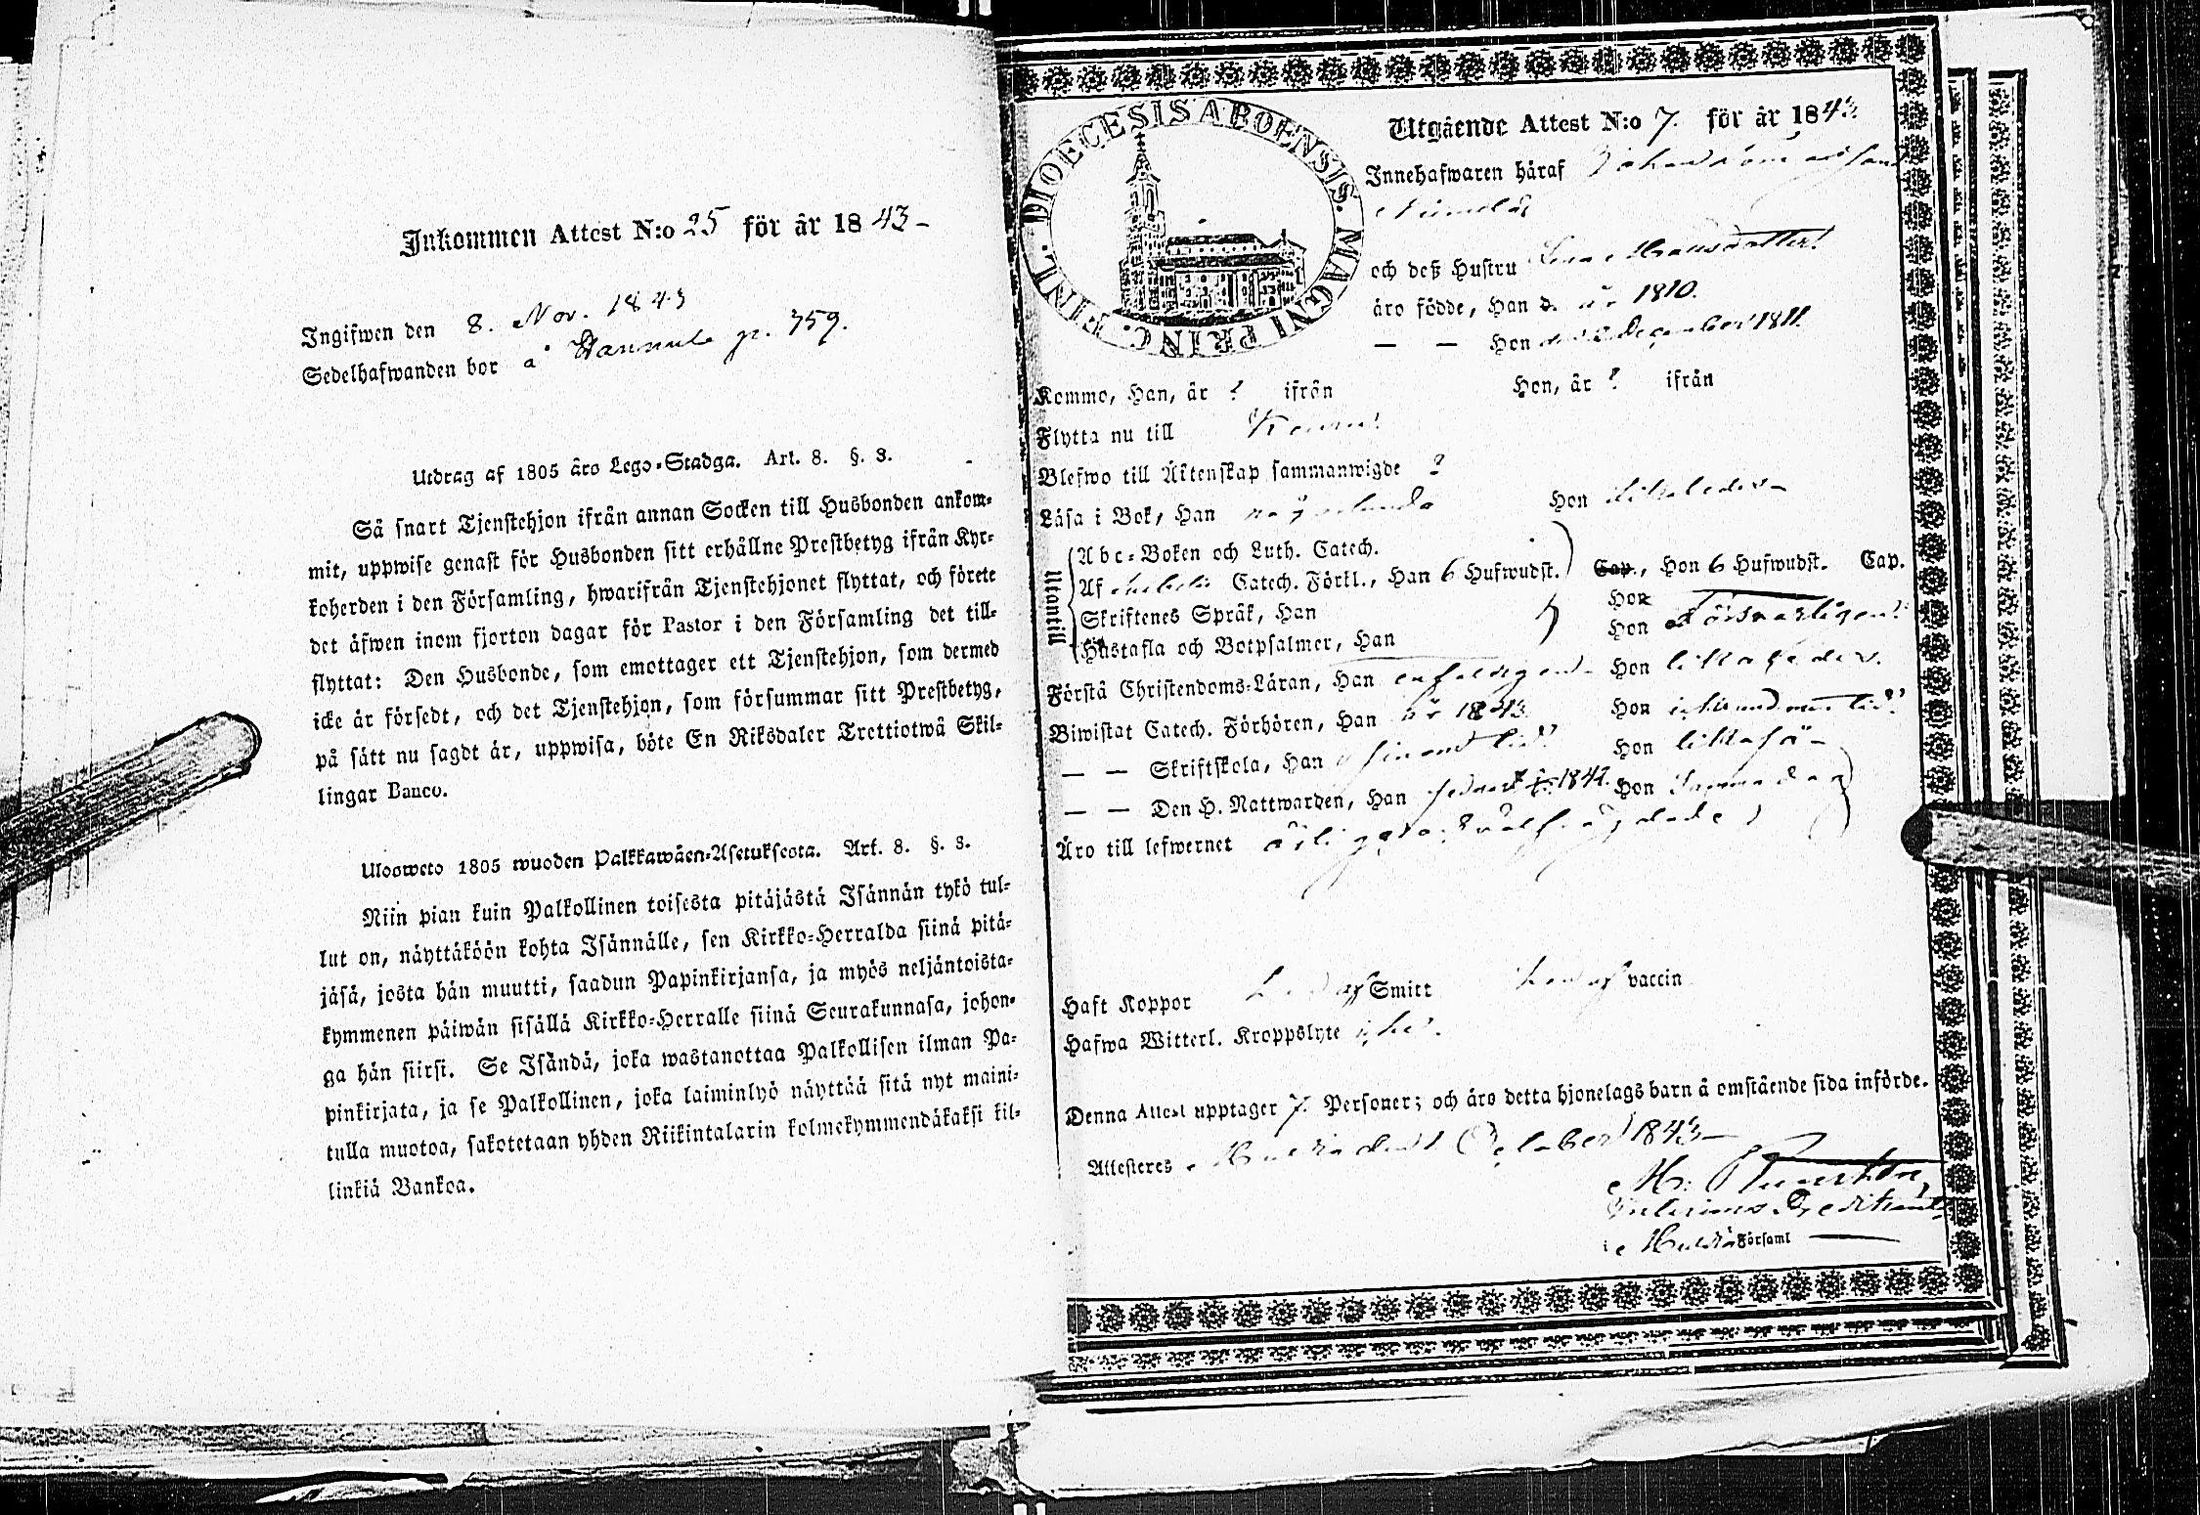 Inkommen Attest N:o 25 för år 1843 -
Ingifwen den 8. Nov. 1843
Sedelhafwanden bor å p. 759.
Utdrag af 1805 års Lego-Stadga. Art. 8. §. 3.
Så snart Tjenstehjon ifrån annan Socken till Husbonden ankom-
mit, uppwise genast för Husbonden sitt erhållne Prestbetyg ifrån Kyr-
koherden i den Församling, hwarifrån Tjenstehjonet flyttat, och förete
det äfwen inom fjorton dagar för Pastor i den Församling det till-
flyttat: Den Husbonde, som emottager ett Tjenstehjon, som dermed
icke är försedt, och det Tjenstehjon, som försummar sitt Prestbetyg,
på sätt nu sagdt är, uppwisa, böte En Riksdaler Trettiotwå Skil-
lingar Banco.
Ulosweto 1805 wuoden Palkkawäen-Asetuksesta. Art. 8. §. 3.
Niin pian kuin Palkollinen toisesta pitäjästä Isännän tykö tul-
lut on, näyttäköön kohta Isännälle, sen Kirkko-Herralda siinä pitä-
jäsä, josta hän muutti, saadun Papinkirjansa, ja myös neljäntoista-
kymmenen päiwän sisällä Kirkko-Herralle siinä Seurakunnasa, johon-
ga hän siirsi. Se Isändä, joka wastanottaa Palkollisen ilman Pa-
pinkirjata, ja se Palkollinen, joka laiminlyö näyttää sitä nyt maini-
tulla muotoa, sakotetaan yhden Riikintalarin kolmekymmendäkaksi kil-
linkiä Bankoa.
DIOECESIS ABOENSIS. MAGNI PRINC. FINL.
Utgående Attest N:o 7. för år 1843.
Innehafwaren häraf Johan
och deß Hustru Lena
äro födde, Han d. år 1810.
— — Hon December 1811.
Kommo, Han, år ? ifrån Hon, år ? ifrån
Flytta nu till
Blefwo till Äktenskap sammanwigde ?
Läsa i Bok, Han Hon likaledes -
Utantill
Abc-Boken och Luth. Catech.
Af Catech. Förkl., Han 6 Hufwudst. Cap., Hon 6 Hufwudst. Cap.
Skriftenes Språk, Han Hon
Hustafla och Botpsalmer, Han Hon Försvarligen
Förstå Christendoms-Läran, Han enfaldigen - Hon likaledes.
Biwistat Catech. Förhören, Han år 1843. Hon
— — Skriftskola, Han Hon likaså -
— — Den H. Nattwarden, Han 1842. Hon Samma dag
Äro till lefwernet ärliga
Haft Koppor af Smitt af vaccin
Hafwa Witterl. Kroppslyte
Denna Attest upptager 7. Personer; och äro detta hjonelags barn å omstående sida införde.
Attesteres October 1843 -
Församl